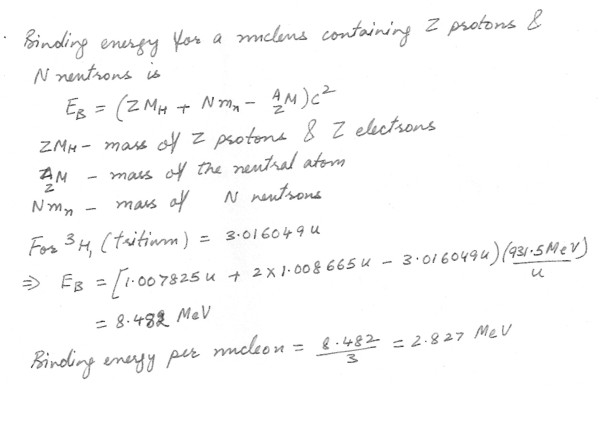 Binding energy for a nucleus containing Z protons &
N neutrons is
E_B = (ZM_H + Nm_n - ^A_Z M)c²
ZM_H - mass of Z protons & Z electrons
^A_Z M - mass of the neutral atom
Nm_n - mass of N neutrons
For ³H, (tritium) = 3.016049u
⇒ E_B = [1.007825u + 2×1.008665u - 3.016049u) (931.5MeV/u)
= 8.482 MeV
Binding energy per nucleon = 8.482/3 = 2.827 MeV